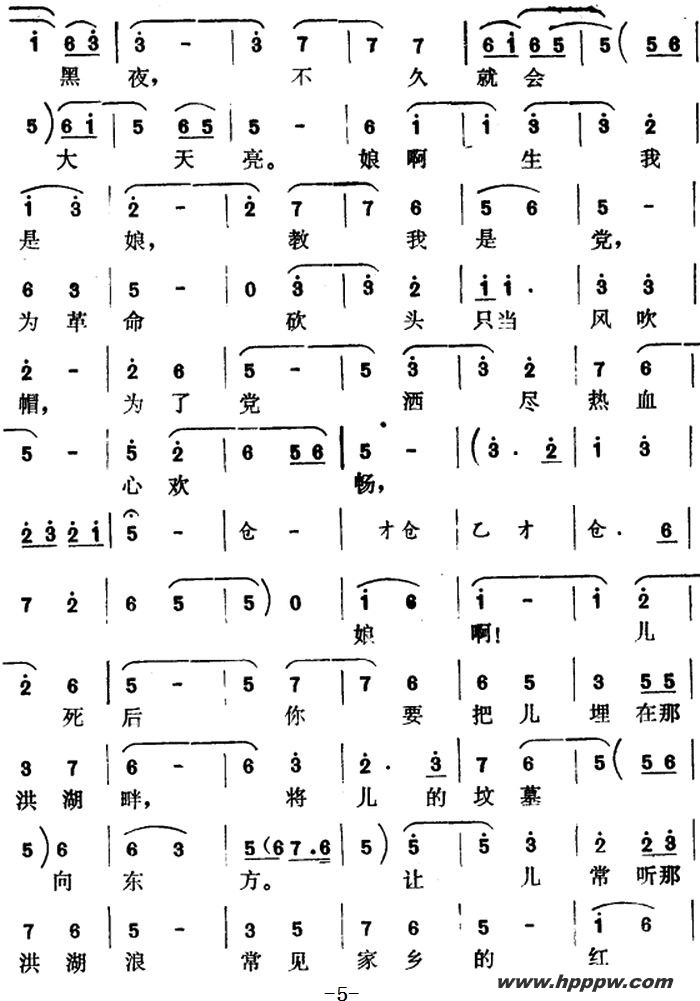 i 6 3 | 3 - | 3 7 | 7 7 | 6 i 6 5 | 5 ( 5 6 |
黑 夜， 不 久 就 会
5 ) 6 i | 5 6 5 | 5 - | 6 i | i 3 | 3 2 |
大 天 亮。 娘 啊 生 我
i 3 | 2 - | 2 7 | 7 6 | 5 6 | 5 - |
是 娘， 教 我 是 党，
6 3 | 5 - | 0 3 | 3 2 | i i . | 3 3 |
为 革 命 砍 头 只 当 风 吹
2 - | 2 6 | 5 - | 5 3 | 3 2 | 7 6 |
帽， 为 了 党 洒 尽 热 血
5 - | 5 2 | 6 5 6 | 5 - | ( 3 . 2 | i 3 |
心 欢 畅，
2 3 2 i | 5 - | 仓 - | 才 仓 | 乙 才 | 仓 . 6 |
7 2 | 6 5 | 5 ) 0 | i 6 | i - | i 2 |
娘 啊！ 儿
2 6 | 5 - | 5 7 | 7 6 | 6 5 | 3 5 5 |
死 后 你 要 把 儿 埋 在 那
3 7 | 6 - | 6 3 | 2 . 3 | 7 6 | 5 ( 5 6 |
洪 湖 畔， 将 儿 的 坟 墓
5 ) 6 | 6 3 | 5 ( 6 7 . 6 | 5 ) 5 | 5 3 | 2 2 3 |
向 东 方。 让 儿 常 听 那
7 6 | 5 - | 3 5 | 7 6 | 5 - | i 6 |
洪 湖 浪 常 见 家 乡 的 红
www.hpppw.com
-5-